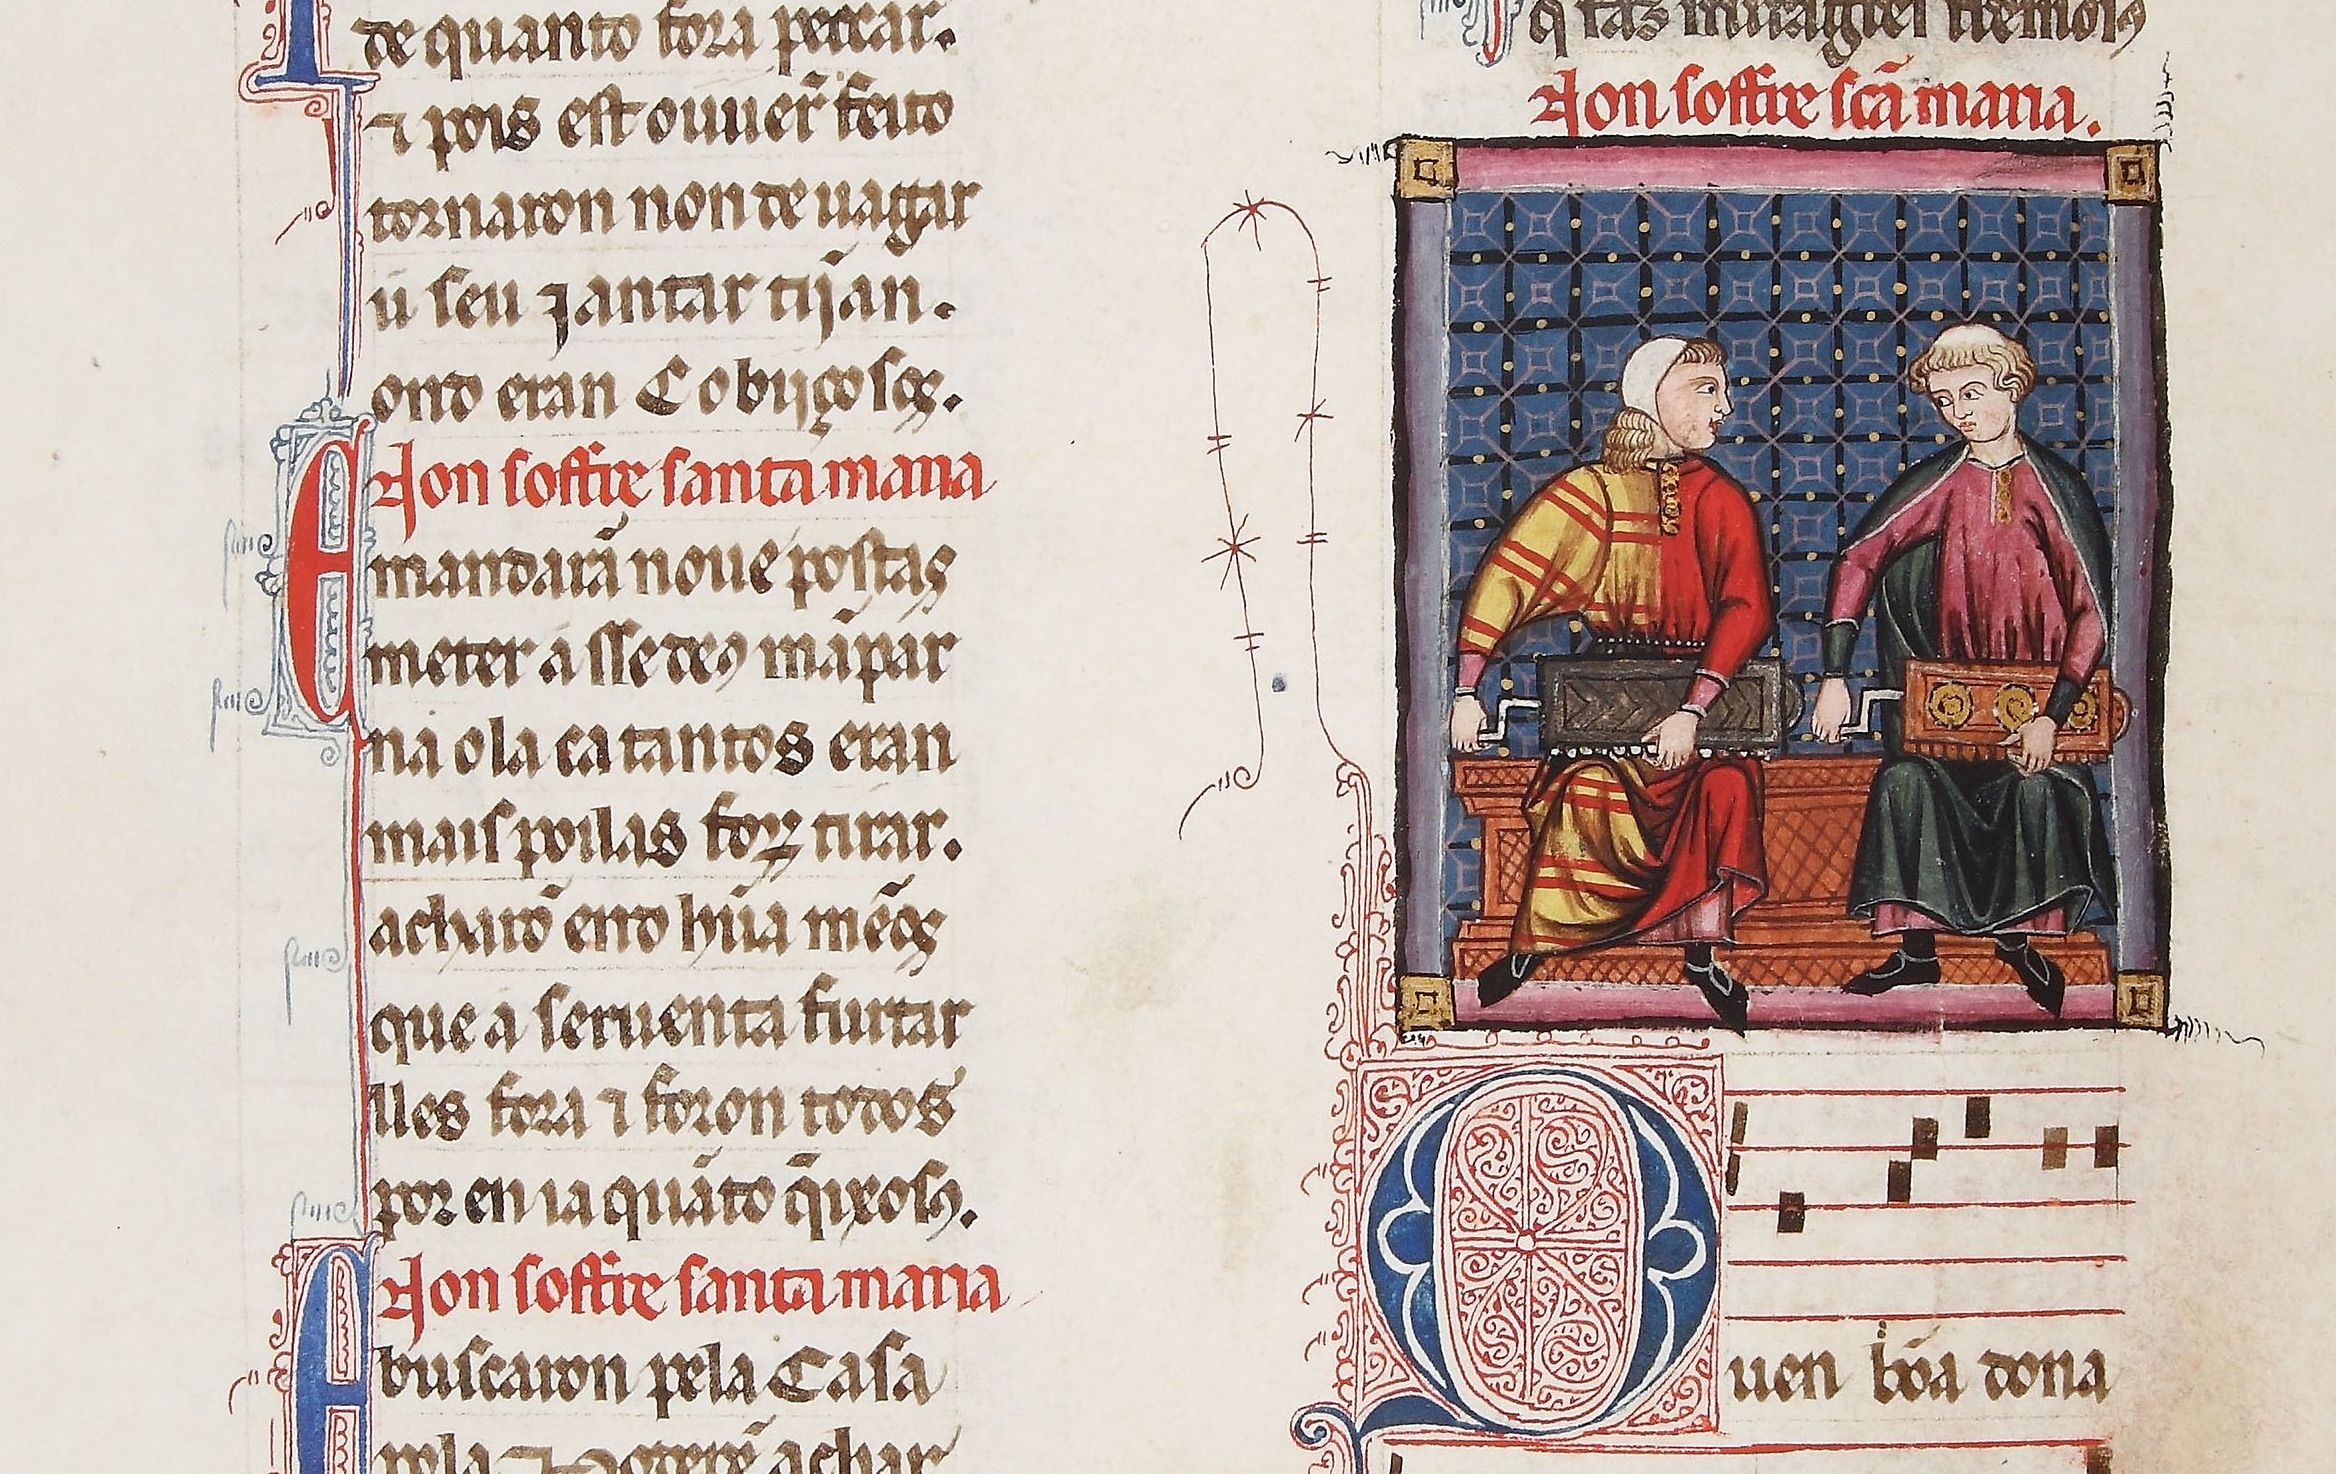 de quanto fora pecear.
⁊ pois est ouuer̃ feito
tornaron non de uagar
ũ seu jantar tijan.
onto eran Cobijçosos.
Non soffre santa maria
E mandarã noue postas
meter a sse deus mãpar
na ola ca tantos eran
mais poilas for̃ tirar.
acharõ end hũa mẽos
que a seruenta furtar
lles fora ⁊ foron todos
por en ia quãto q̃ixosos.
Non soffre santa maria
A buscaron pela Casa
pola
achar
q tas miragres
Non soffre scã maria.
Quen bõa dona